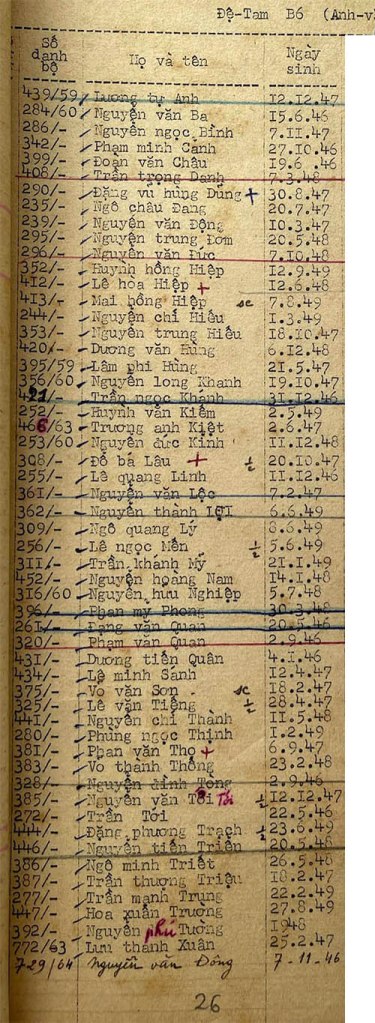 Đệ-Tam B6 (Anh-v
Số danh bộ Họ và tên Ngày sinh
439/59 Lương tự Anh 12.12.47
284/60 Nguyễn văn Ba 15.6.46
286/- Nguyễn ngọc Bỉnh 7.11.47
342/- Phạm minh Cảnh 27.10.46
399/- Đoàn văn Châu 19.6.46
408/- Trần trọng Danh 7.3.48
290/- Đặng vũ hùng Dũng + 30.8.47
235/- Ngô châu Đang 20.7.47
239/- Nguyễn văn Động 10.3.47
295/- Nguyễn trung Đơm 20.5.48
296/- Nguyễn văn Đức 7.10.48
352/- Huỳnh hồng Hiệp 12.9.49
412/- Lê hòa Hiệp + 12.6.48
413/- Mai hồng Hiệp sc 7.8.49
244/- Nguyễn chí Hiếu 1.3.49
353/- Nguyễn trung Hiếu 18.10.47
420/- Dương văn Hùng 6.12.48
395/59 Lâm phi Hùng 21.5.47
356/60 Nguyễn long Khanh 19.10.47
Trần ngọc Khánh 31.12.46
252/- Huỳnh văn Kiếm 2.5.49
466/63 Trương anh Kiệt 2.6.47
253/60 Nguyễn đức Kỉnh 11.12.48
308/- Đỗ bá Lâu + ½ 20.10.47
255/- Lê quang Linh 11.12.46
361/- Nguyễn văn Lộc 7.2.47
362/- Nguyễn thành LỢI 6.6.49
309/- Ngô quang Lý 8.6.49
256/- Lê ngọc Mến ½ 5.6.49
311/- Trần khánh Mỹ 21.1.49
452/- Nguyễn hoàng Nam 14.1.48
316/60 Nguyễn hữu Nghiệp 5.7.48
396/- Phan mỹ Phong 30.3.48
261/- Đặng văn Quan 20.5.46
320/- Phạm văn Quan 2.9.46
431/- Dương tiến Quân 4.1.46
434/- Lê minh Sanh 12.4.47
375/- Võ văn Sơn sc 18.2.47
325/- Lê văn Tiếng ½ 28.4.47
441/- Nguyễn chí Thành 11.5.48
280/- Phùng ngọc Thịnh 1.2.49
381/- Phan văn Thọ + 6.9.47
383/- Võ thành Thông 23.2.48
328/- Nguyễn đình Tòng 2.9.46
385/- Nguyễn văn Tới Tới ½ 12.12.47
272/- Trần Tới 22.5.46
444/- Đặng phương Trạch ½ 23.6.49
446/- Nguyễn tiến Triển 20.5.48
386/- Ngô minh Triết 26.5.48
387/- Trần thượng Triệu 18.2.47
277/- Trần mạnh Trung 22.2.49
447/- Hoa xuân Trường 27.8.49
392/- Nguyễn phú Tường 1948
772/63 Lưu thanh Xuân 25.2.47
729/64 Nguyễn văn Đông 7-11-46
26